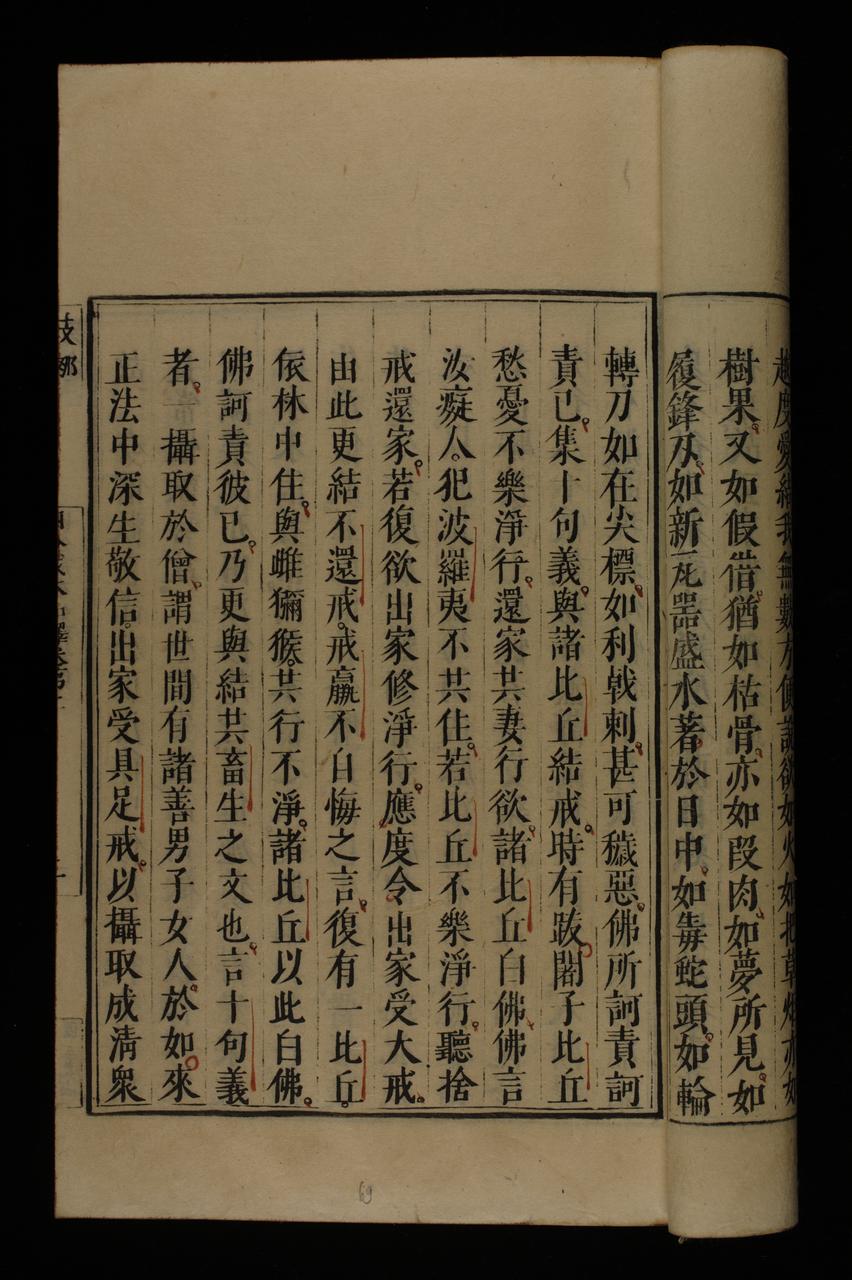 越度愛結我無數方便說欲如火如把草炬亦如
樹果又如假借猶如枯骨亦如段肉如夢所見如
履鋒刃如新瓦器盛水著於日中如毒蛇頭如輪
轉刀如在尖標如利戟刺甚可穢惡佛所訶責訶
責已集十句義與諸比丘結戒時有跋闍子比丘
愁憂不樂淨行還家共妻行欲諸比丘白佛佛言
汝癡人犯波羅夷不共住若比丘不樂淨行聽捨
戒還家若復欲出家修淨行應度令出家受大戒
由此更結不還戒戒羸不自悔之言復有一比丘
依林中住與雌獼猴共行不淨諸比丘以此白佛
佛訶責彼已乃更與結共畜生之文也言十句義
者一攝取於僧謂世間有諸善男子女人於如來
正法中深生敬信出家受具足戒以攝取成清衆